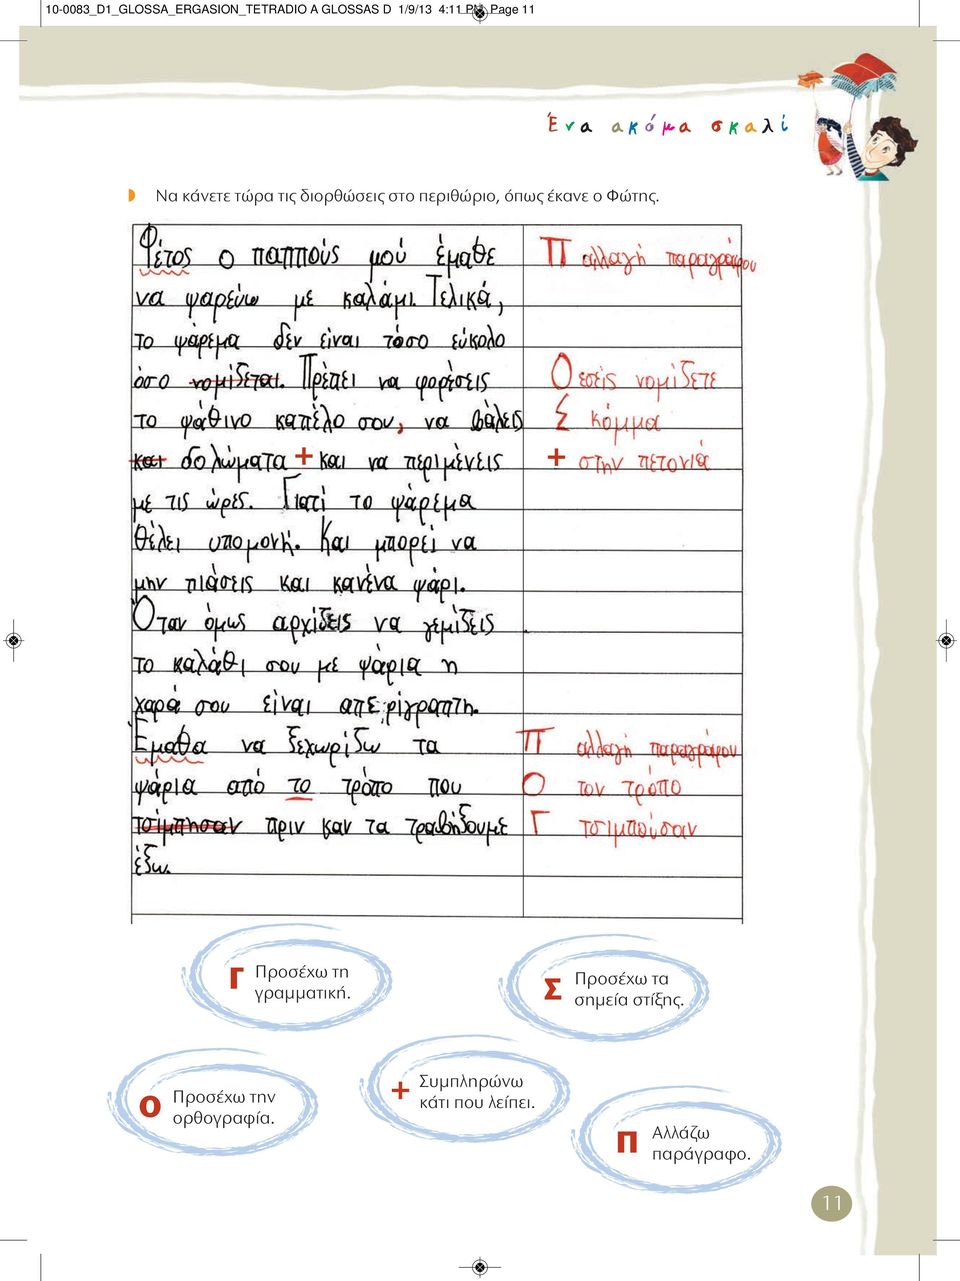 10-0083_D1_GLOSSA_ERGASION_TETRADIO A GLOSSAS D 1/9/13 4:11 PM Page 11
Ένα ακόμα σκαλί
Να κάνετε τώρα τις διορθώσεις στο περιθώριο, όπως έκανε ο Φώτης.
Φέτος ο παππούς μού έμαθε Π αλλαγή παραγράφου
να ψαρεύω με καλάμι. Τελικά,
το ψάρεμα δεν είναι τόσο εύκολο
όσο νομίζεται. Πρέπει να φορέσεις Ο εσείς νομίζετε
το ψάθινο καπέλο σου, να βάλεις Σ κόμμα
και δολώματα + και να περιμένεις + στην πετονιά
με τις ώρες. Γιατί το ψάρεμα
θέλει υπομονή. Και μπορεί να
μην πιάσεις και κανένα ψάρι.
Όταν όμως αρχίζεις να γεμίζεις
το καλάθι σου με ψάρια η
χαρά σου είναι απερίγραπτη.
Έμαθα να ξεχωρίζω τα Π αλλαγή παραγράφου
ψάρια από το τρόπο που Ο τον τρόπο
τσίμπησαν πριν καν τα τραβήξουμε Γ τσιμπούσαν
έξω.
Γ Προσέχω τη
γραμματική.
Σ Προσέχω τα
σημεία στίξης.
Ο Προσέχω την
ορθογραφία.
+ Συμπληρώνω
κάτι που λείπει.
Π Αλλάζω
παράγραφο.
11